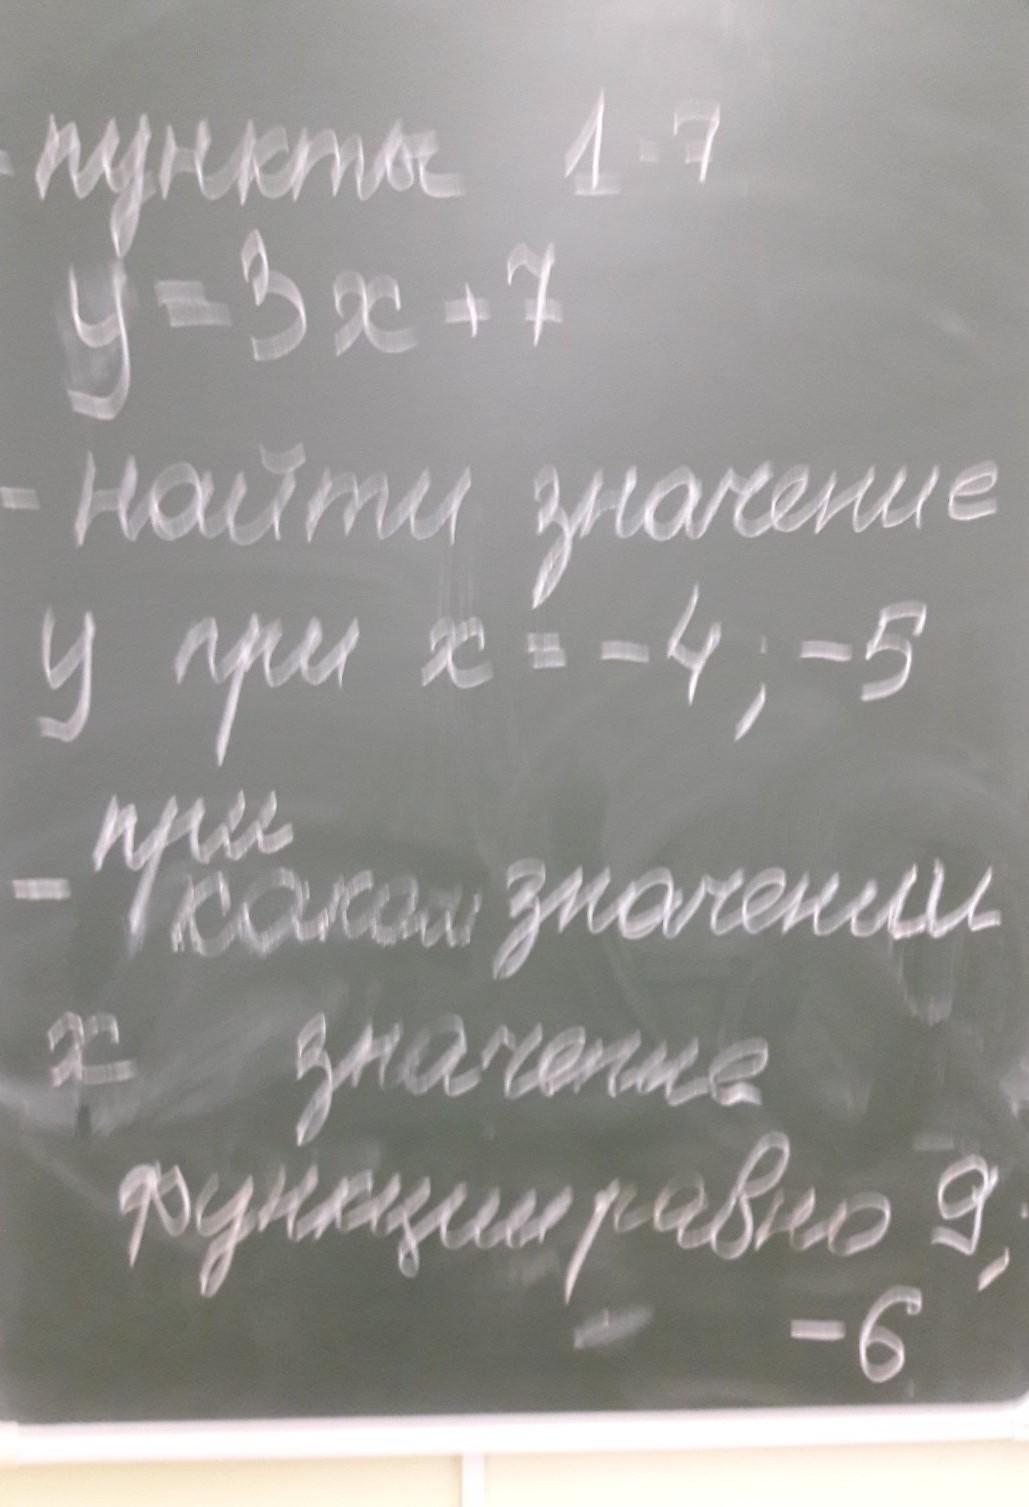 - пункты 1-7
y = 3x + 7
- найти значение
y при x = -4; -5
- при каком значении
x значение
функции равно 9;
-6